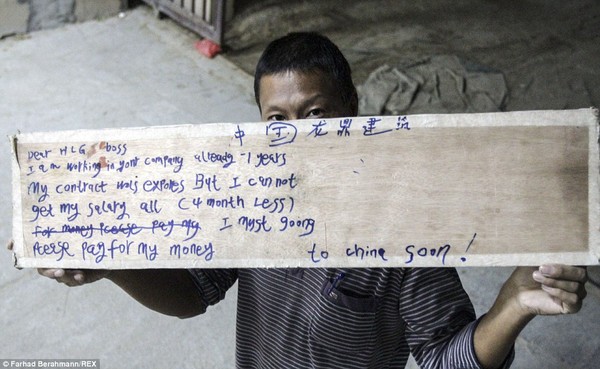 中国龙鼎建筑
Dear HLG boss
I am working in yont company already 1 years
My contract wois expoles But I can not
get my salary all (4 month Less)
for money Please pay my I myst goong
Plese pay for my money to china soon!
© Farhad Berahmann/REX